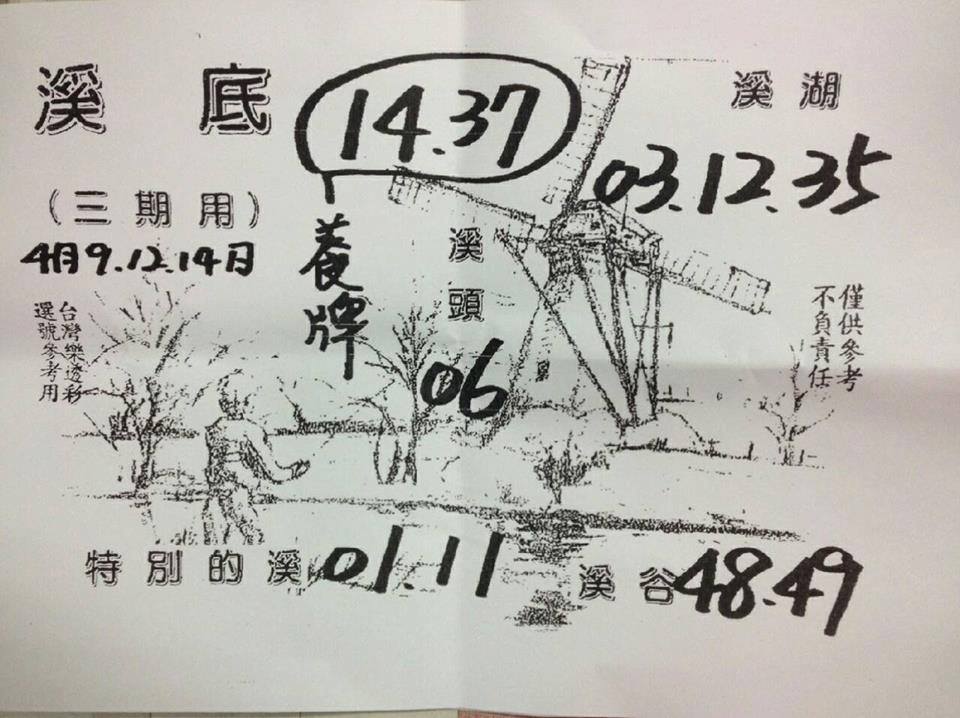 溪底
14.37
溪湖
03.12.35
(三期用)
4月9.12.14日
養牌
溪頭
06
台灣樂透彩
選號參考用
僅供參考
不負責任
特別的溪 01.11
溪谷 48.49